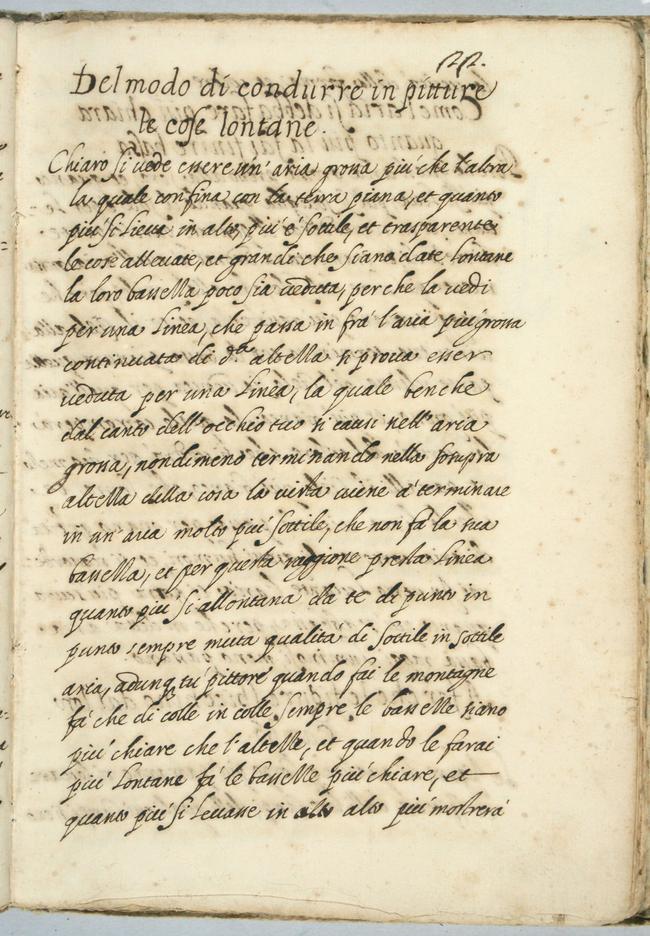 122.
Del modo di condurre in pitture
le cose lontane.
Chiaro si vede essere un' aria grossa piu' che l'altra
la quale confina con la terra piana, et quanto
piu si lieva in alto, piu' é sottile, et trasparente
le cose allevate, et grandi che siano da te lontane
la loro bassella poco sia veduta, perche la vedi
per una linea, che passa in fra' l'aria piu' grossa
continuata di d.ª altella si prova esser
veduta per una linea, la quale benche
dal canto dell' occhio tuo si causi nell' aria
grossa, nondimeno terminando nella somma
altella della cosa la vista viene á terminare
in un' aria molto piu' sottile, che non fá la sua
bassella, et per questa raggione questa linea
quanto piu si allontana da te di punto in
punto sempre muta qualitá di sottile in sottile
aria, adunq tu' pittore quando fai le montagne
fá che di colle in colle sempre le basselle siano
piu' chiare che l'altelle, et quando le farai
piu' lontane fá le basselle piu' chiare, et
quanto piu' si levasse in alto piu' mostrerá